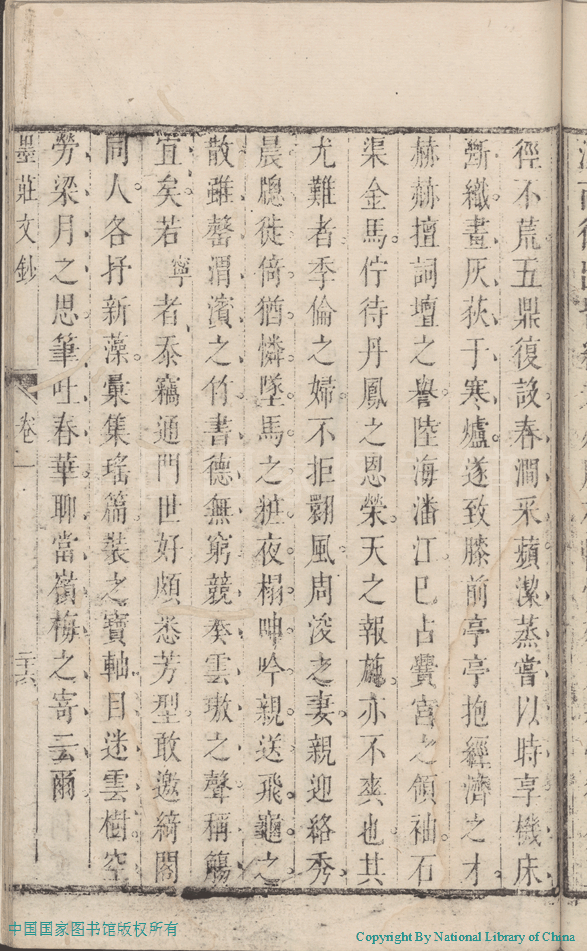 徑不荒五鼎復設春澗采蘋潔蒸嘗以時享機床
漸纖畫灰荻于寒爐遂致膝前亭亭抱經濟之才
赫赫擅詞壇之譽陸海潘江巳占黌宮之領袖石
渠金馬佇待丹鳳之恩榮天之報施亦不爽也其
尤難者季倫之婦不拒翾風周浚之妻親迎絡秀
晨牕徙倚猶憐墜馬之粧夜榻呻吟親送飛龜之
散雖罄渭濱之竹書德無窮競奏雲璈之聲稱觴
宜矣若寧者忝竊通門世好頗悉芳型敢邀綺閣
同人各抒新藻彙集瑤篇裝之寶軸目迷雲樹空
勞梁月之思筆吐春華聊當嶺梅之寄云爾
墨莊文鈔
卷一
二十六
中国国家图书馆版权所有
Copyright By National Library of China